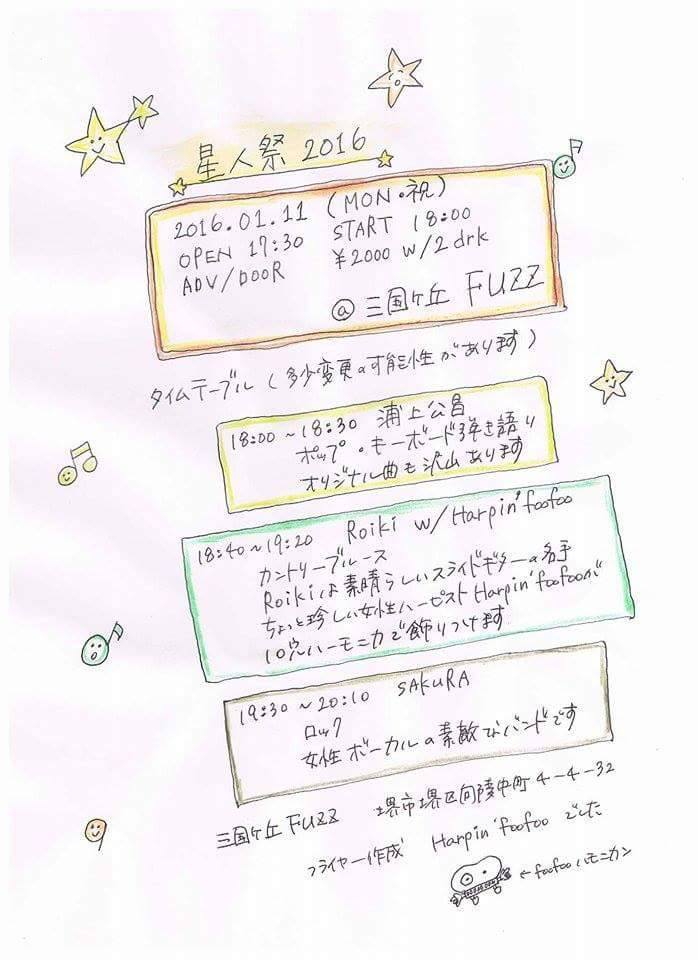 星人祭 2016
2016.01.11 (MON・祝)
OPEN 17:30 START 18:00
ADV/DOOR ¥2000 w/2 drk
@ 三国ヶ丘 FUZZ
タイムテーブル (多少変更の可能性があります)
18:00 ~ 18:30 浦上公昌
ポップ・キーボード弾き語り
オリジナル曲も沢山あります
18:40 ~ 19:20 Roiki w/Harpin'foofoo
カントリーブルース
Roikiは素晴らしいスライドギターの名手
ちょっと珍しい女性ハーピストHarpin'foofooが
10穴ハーモニカで飾りつけます
19:30 ~ 20:10 SAKURA
ロック
女性ボーカルの素敵なバンドです
三国ヶ丘 FUZZ 堺市堺区向陵中町 4-4-32
フライヤー作成 Harpin'foofoo でした
←foofooハモニカン